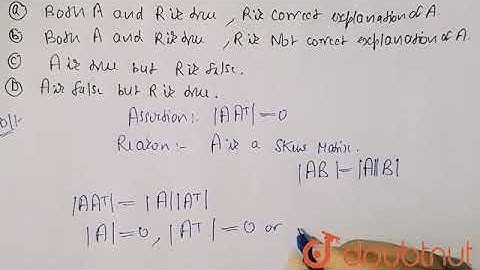 (a) Both A and R is true, R is correct explanation of A.
(b) Both A and R is true, R is Not correct explanation of A.
(c) A is true but R is false.
(D) A is false but R is true.
Assertion:- |AAᵀ|=0
Reason:- A is a skew Matrix.
|AB|=|A||B|
|AAᵀ|= |A||Aᵀ|
|A|=0, |Aᵀ|=0 or
doubtnut